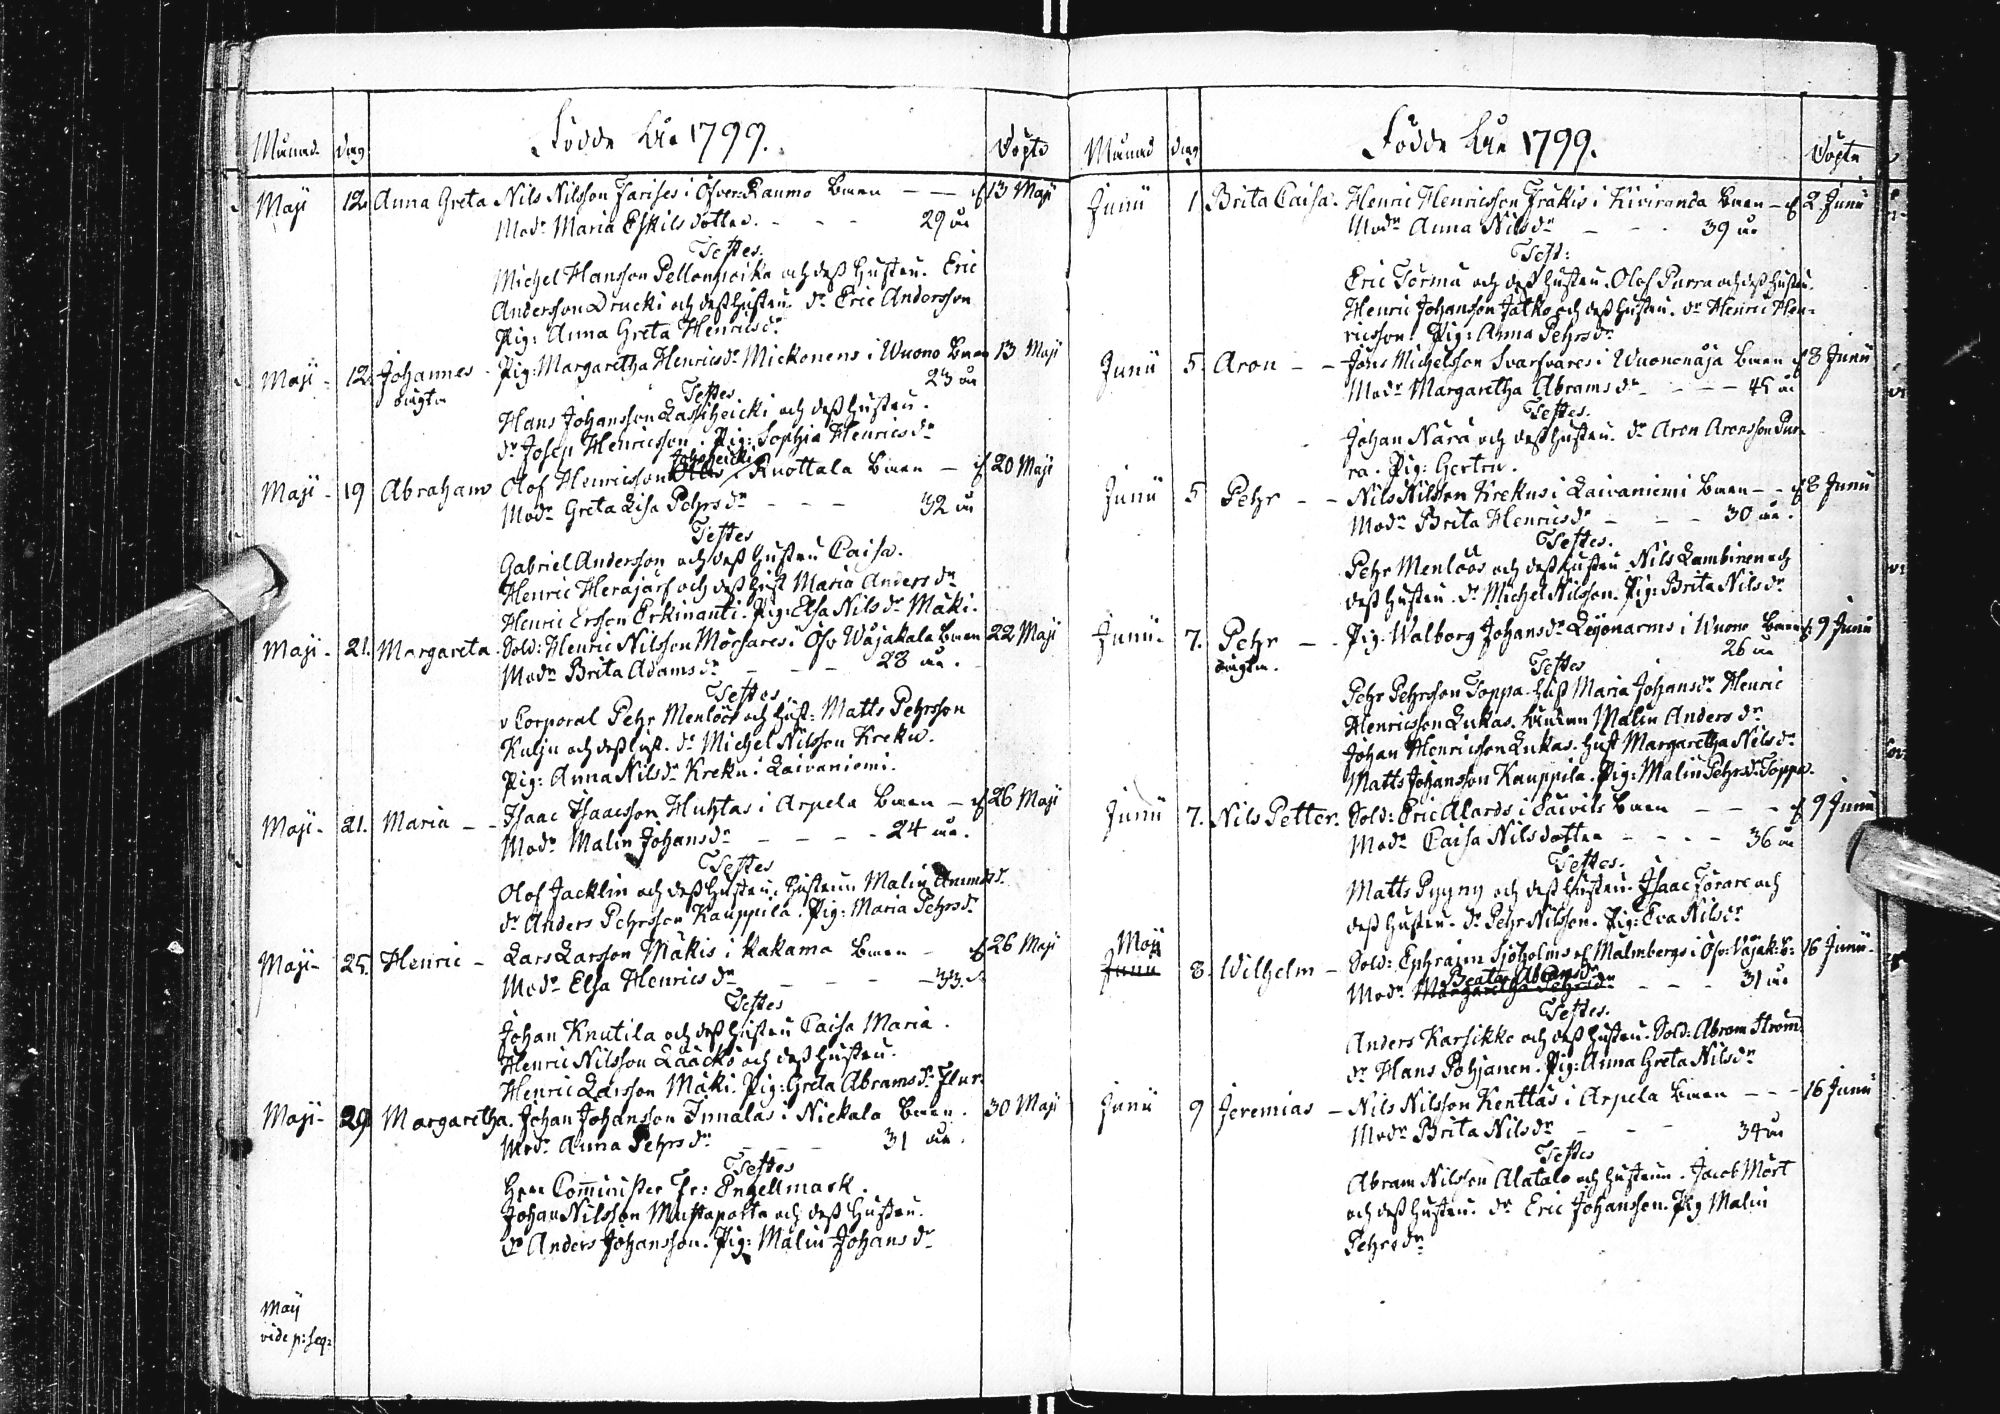 Födde År 1799.
Månad Dag Döpte
Maji 12. Anna Greta Nils Nilsson Jarises i Öfver Raumo Barn 13 Maji
Modr Maria Eskilsdotter. 29 år
Testes.
Michel Hansson Pellonpoika och dess Hustru. Eric
Andersson Drucki och dess Hustru. dr Eric Andersson
Pig: Anna Greta Henricsdr
Maji 12. Johannes Pig: Margaretha Henricsdr Mickonens i Wuono Barn 13 Maji
oägta 23 år
Testes.
Hans Johansson Lassiheicki och dess Hustru.
dr Josep Henricsson. Pig: Sophia Henricsdr
Maji 19 Abraham Olof Henricsson Knottala Barn 20 Maji
Modr Greta Lisa Pehrsdr 32 år
Testes
Gabriel Andersson och dess Hustru Caisa.
Henric Herajärf och dess Hust Maria Andersdr
Henric Ersson Erkinanti. Pig: Elsa Nilsdr Mäki.
Maji 21. Margareta Sold: Henric Nilsson Mörsares i Öfv Wojakala Barn 22 Maji
Modr Brita Adamsdr 28 år.
Testes
v Corporal Pehr Menlöös och Hust: Matts Pehrsson
Kulju och dess Hust. dr Michel Nilsson Kreku.
Pig: Anna Nilsdr Kreku i Laivaniemi.
Maji 21. Maria Isaac Isaacsson Huhtas i Arpela Barn 26 Maji
Modr Malin Johansdr 24 år.
Testes
Olof Jacklin och dess Hustru, Hustrun Malin
dr Anders Pehrsson Kauppila. Pig: Maria Pehrsdr
Maji 25. Henric Lars Larsson Mäkis i Kakama Barn 26 Maji
Modr Elsa Henricsdr 33
Testes
Johan Knutila och dess Hustru Caisa Maria.
Henric Nilsson Laacko och dess Hustru.
Henric Larsson Mäki. Pig: Greta Abramsdr
Maji 29 Margaretha. Johan Johansson Innalas i Nickala Barn. 30 Maji
Modr Anna Pehrsdr 31 år.
Testes
Herr Comminister Fr: Engellmark.
Johan Nilsson Mustaparta och dess Hustru.
dr Anders Johansson. Pig: Malin Johansdr
Maij
vide p: seq:
Födde År 1799.
Månad Dag Döpte
Junii 1 Brita Caisa. Henric Henricsson Frakis i Kiviranda Barn 2 Junii
Modr Anna Nilsdr 39 år
Test:
Eric Törmä och dess Hustru. Olof Purra och dess Hustru.
Henric Johansson Jatko och dess Hustru. dr Henric Hen-
ricsson. Pig: Anna Pehrsdr
Junii 5 Aron Jöns Michelsson Svarfvares i Wuononäja Barn 8 Junii
Modr Margaretha Abramsdr 45 år
Testes.
Johan Nara och dess Hustru. dr Aron Aronsson Pur-
ra. Pig: Gertru.
Junii 5 Pehr Nils Nilsson Krekus i Laivaniemi Barn 8 Junii
Modr Brita Henricsdr 30 år.
Testes.
Pehr Menlöös och dess Hustru. Nils Lambinen och
dess Hustru. dr Michel Nilsson. Pig: Brita Nilsdr
Junii 7. Pehr Pig: Walborg Johansdr Leijonarms i Wuono Barn 9 Junii
oägta. 26 år
Testes
Pehr Pehrsson Toppa. Hust Maria Johansdr Henric
Henricsson Lukas. Malin Andersdr
Johan Henricsson Lukas. Hust Margaretha Nilsdr
Matts Johansson Kauppila. Pig: Malin Pehrsdr Toppa.
Junii 7. Nils Petter. Sold: Eric Alards i Säivils Barn 9 Junii
Modr Caisa Nilsdotter 36 år
Testes.
Matts Pyyny och dess Hustru. Isaac Förare och
dess Hustru. dr Pehr Nilsson. Pig: Eva Nilsdr
Maji
Junii 8. Wilhelm Sold: Ephraim Sjöholms Malmbergs i Öfv: Vojak: B: 16 Junii
Beata Abramsdr
Modr Margaretha Pehrsdr 31 år
Testes.
Anders Karsikko och dess Hustru. Sold: Abram Ström.
dr Hans Pohjanen. Pig: Anna Greta Nilsdr
Junii 9 Jeremias Nils Nilsson Kenttäs i Arpela Barn 16 Junii
Modr Brita Nilsdr 34 år
Testes
Abram Nilsson Alatalo och Hustrun. Jacob Mört
och dess Hustru. dr Eric Johansson. Pig Malin
Pehrsdr